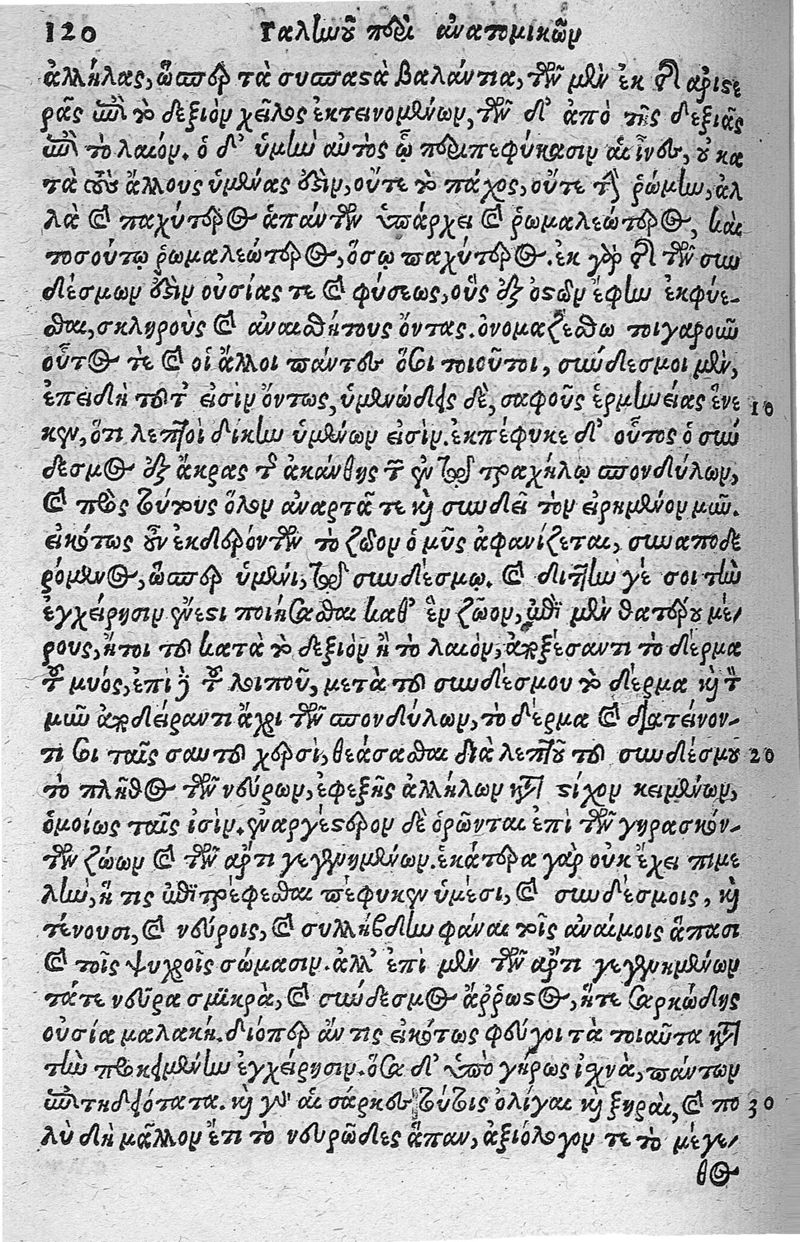 120 Γαληνοῦ περὶ ἀνατομικῶν
ἀλλήλας, ὥσπερ τὰ σύσπαστα βαλάντια, τῶν μὲν ἐκ τῆς ἀριστε
ρᾶς ἐπὶ τὸ δεξιὸν χεῖλος ἐκτεινομένων, τῶν δ' ἀπὸ τῆς δεξιᾶς
ἐπὶ τὸ λαιόν. ὁ δ' ὑμὴν αὐτὸς ᾧ περιπεφύκασιν αἱ ἶνες, οὐ κα
τὰ τοὺς ἄλλους ὑμένας ἐστὶν, οὔτε τὸ πάχος, οὔτε τὴν ῥώμην, ἀλ
λὰ καὶ παχύτερος ἁπάντων ὑπάρχει καὶ ῥωμαλεώτερος, καὶ
τοσούτῳ ῥωμαλεώτερος, ὅσῳ παχύτερος. ἐκ γὰρ τῆς τῶν συν
δέσμων ἐστὶν οὐσίας τε καὶ φύσεως, οὓς ἐξ ὀστῶν ἔφην ἐκφύε-
σθαι, σκληροὺς καὶ ἀναισθήτους ὄντας. ὀνομαζέσθω τοιγαροῦν
οὗτός τε καὶ οἱ ἄλλοι πάντες ὅσοι τοιοῦτοι, σύνδεσμοι μὲν,
ἐπειδὴ τοῦτ' εἰσὶν ὄντως, ὑμενώδεις δὲ, σαφοῦς ἑρμηνείας ἕνε 10
κεν, ὅτι λεπτοὶ δίκην ὑμένων εἰσίν. ἐκπέφυκε δ' οὗτος ὁ σύν
δεσμος ἐξ ἄκρας τῆς ἀκάνθης τῶν ἐν τῷ τραχήλῳ σπονδύλων,
καὶ πρὸς τούτους ὅλον ἀναρτᾶ τε καὶ συνδεῖ τὸν εἰρημένον μῦν.
εἰκότως οὖν ἐκδερόντων τὸ ζῶον ὁ μῦς ἀφανίζεται, συναποδε
ρόμενος, ὥσπερ ὑμένι, τῷ συνδέσμῳ. καὶ διττήν γέ σοι τὴν
ἐγχείρησιν ἔνεστι ποιήσασθαι καθ' ἓν ζῶον, ἐπὶ μὲν θατέρου μέ-
ρους, ἤτοι τοῦ κατὰ τὸ δεξιὸν ἢ τὸ λαιὸν, ἀποξέσαντι τὸ δέρμα
τοῦ μυός, ἐπὶ δὲ τοῦ λοιποῦ, μετὰ τοῦ συνδέσμου τὸ δέρμα καὶ τὸν
μῦν ἀποδείραντι ἄχρι τῶν σπονδύλων, τὸ δέρμα καὶ διατείνον-
τί σοι ταῖς σαυτοῦ χερσὶ, θεάσασθαι διὰ λεπτοῦ τοῦ συνδέσμου 20
τὸ πλῆθος τῶν νεύρων, ἐφεξῆς ἀλλήλων κατὰ στίχον κειμένων,
ὁμοίως ταῖς ἰσίν. ἐναργέστερον δὲ ὁρῶνται ἐπὶ τῶν γηρασκόν-
των ζώων καὶ τῶν ἄρτι γεγενημένων. ἑκάτερα γὰρ οὐκ ἔχει πιμε
λὴν, ἥ τις ἐπιτρέφεσθαι πέφυκεν ὑμέσι, καὶ συνδέσμοις, καὶ
τένουσι, καὶ νεύροις, καὶ συλλήβδην φάναι τοῖς ἀναίμοις ἅπασι
καὶ τοῖς ψυχροῖς σώμασιν. ἀλλ' ἐπὶ μὲν τῶν ἄρτι γεγενημένων
τά τε νεῦρα σμικρὰ, καὶ σύνδεσμος ἄῤῥωστος, ἥ τε σαρκώδης
οὐσία μαλακή. διόπερ ἄν τις εἰκότως φεύγοι τὰ τοιαῦτα κατὰ
τὴν προκειμένην ἐγχείρησιν. ὅσα δ' ὑπὸ γήρως ἰσχνὰ, πάντων
ἐπιτηδειότατα. καὶ γὰρ αἱ σάρκες τούτοις ὀλίγαι καὶ ξηραὶ, καὶ πο 30
λὺ δὴ μᾶλλον ἔτι τὸ νευρῶδες ἅπαν, ἀξιόλογόν τε τὸ μέγε-
θος